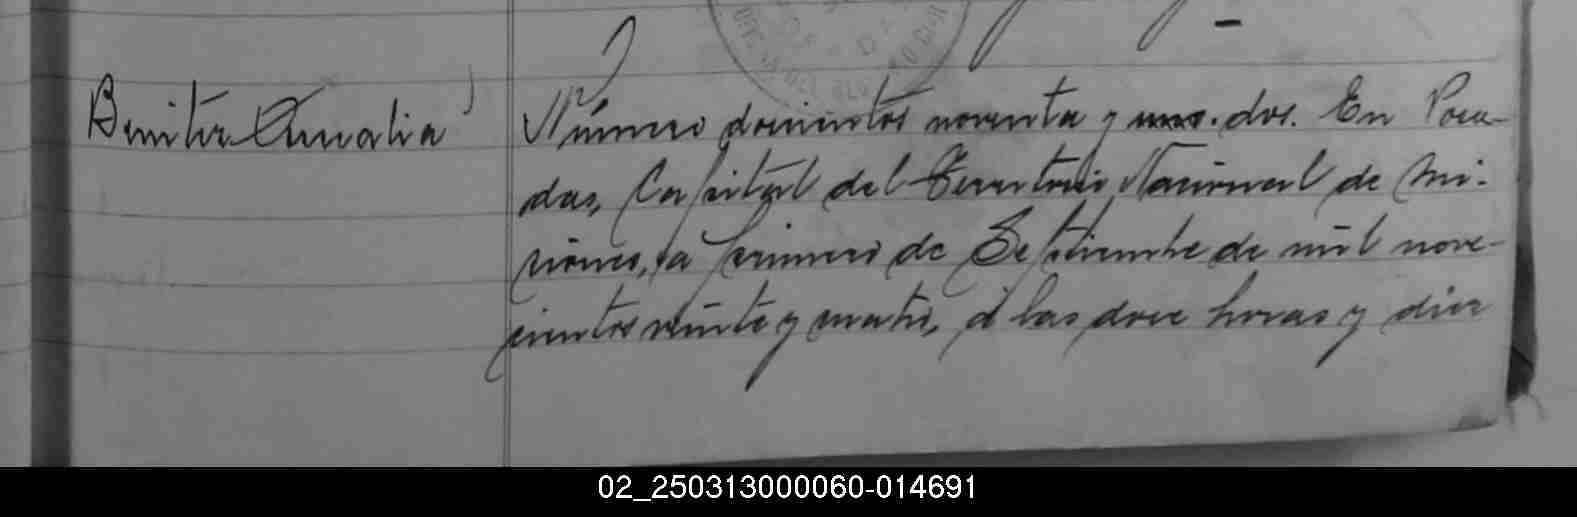 Benitez Amalia
Número doscientos noventa y uno. dos. En Posa-
das, Capital del Territorio Nacional de Mi-
siones, a primero de Septiembre de mil nove-
cientos veinte y cuatro, á las doce horas y diez
02_250313000060-014691